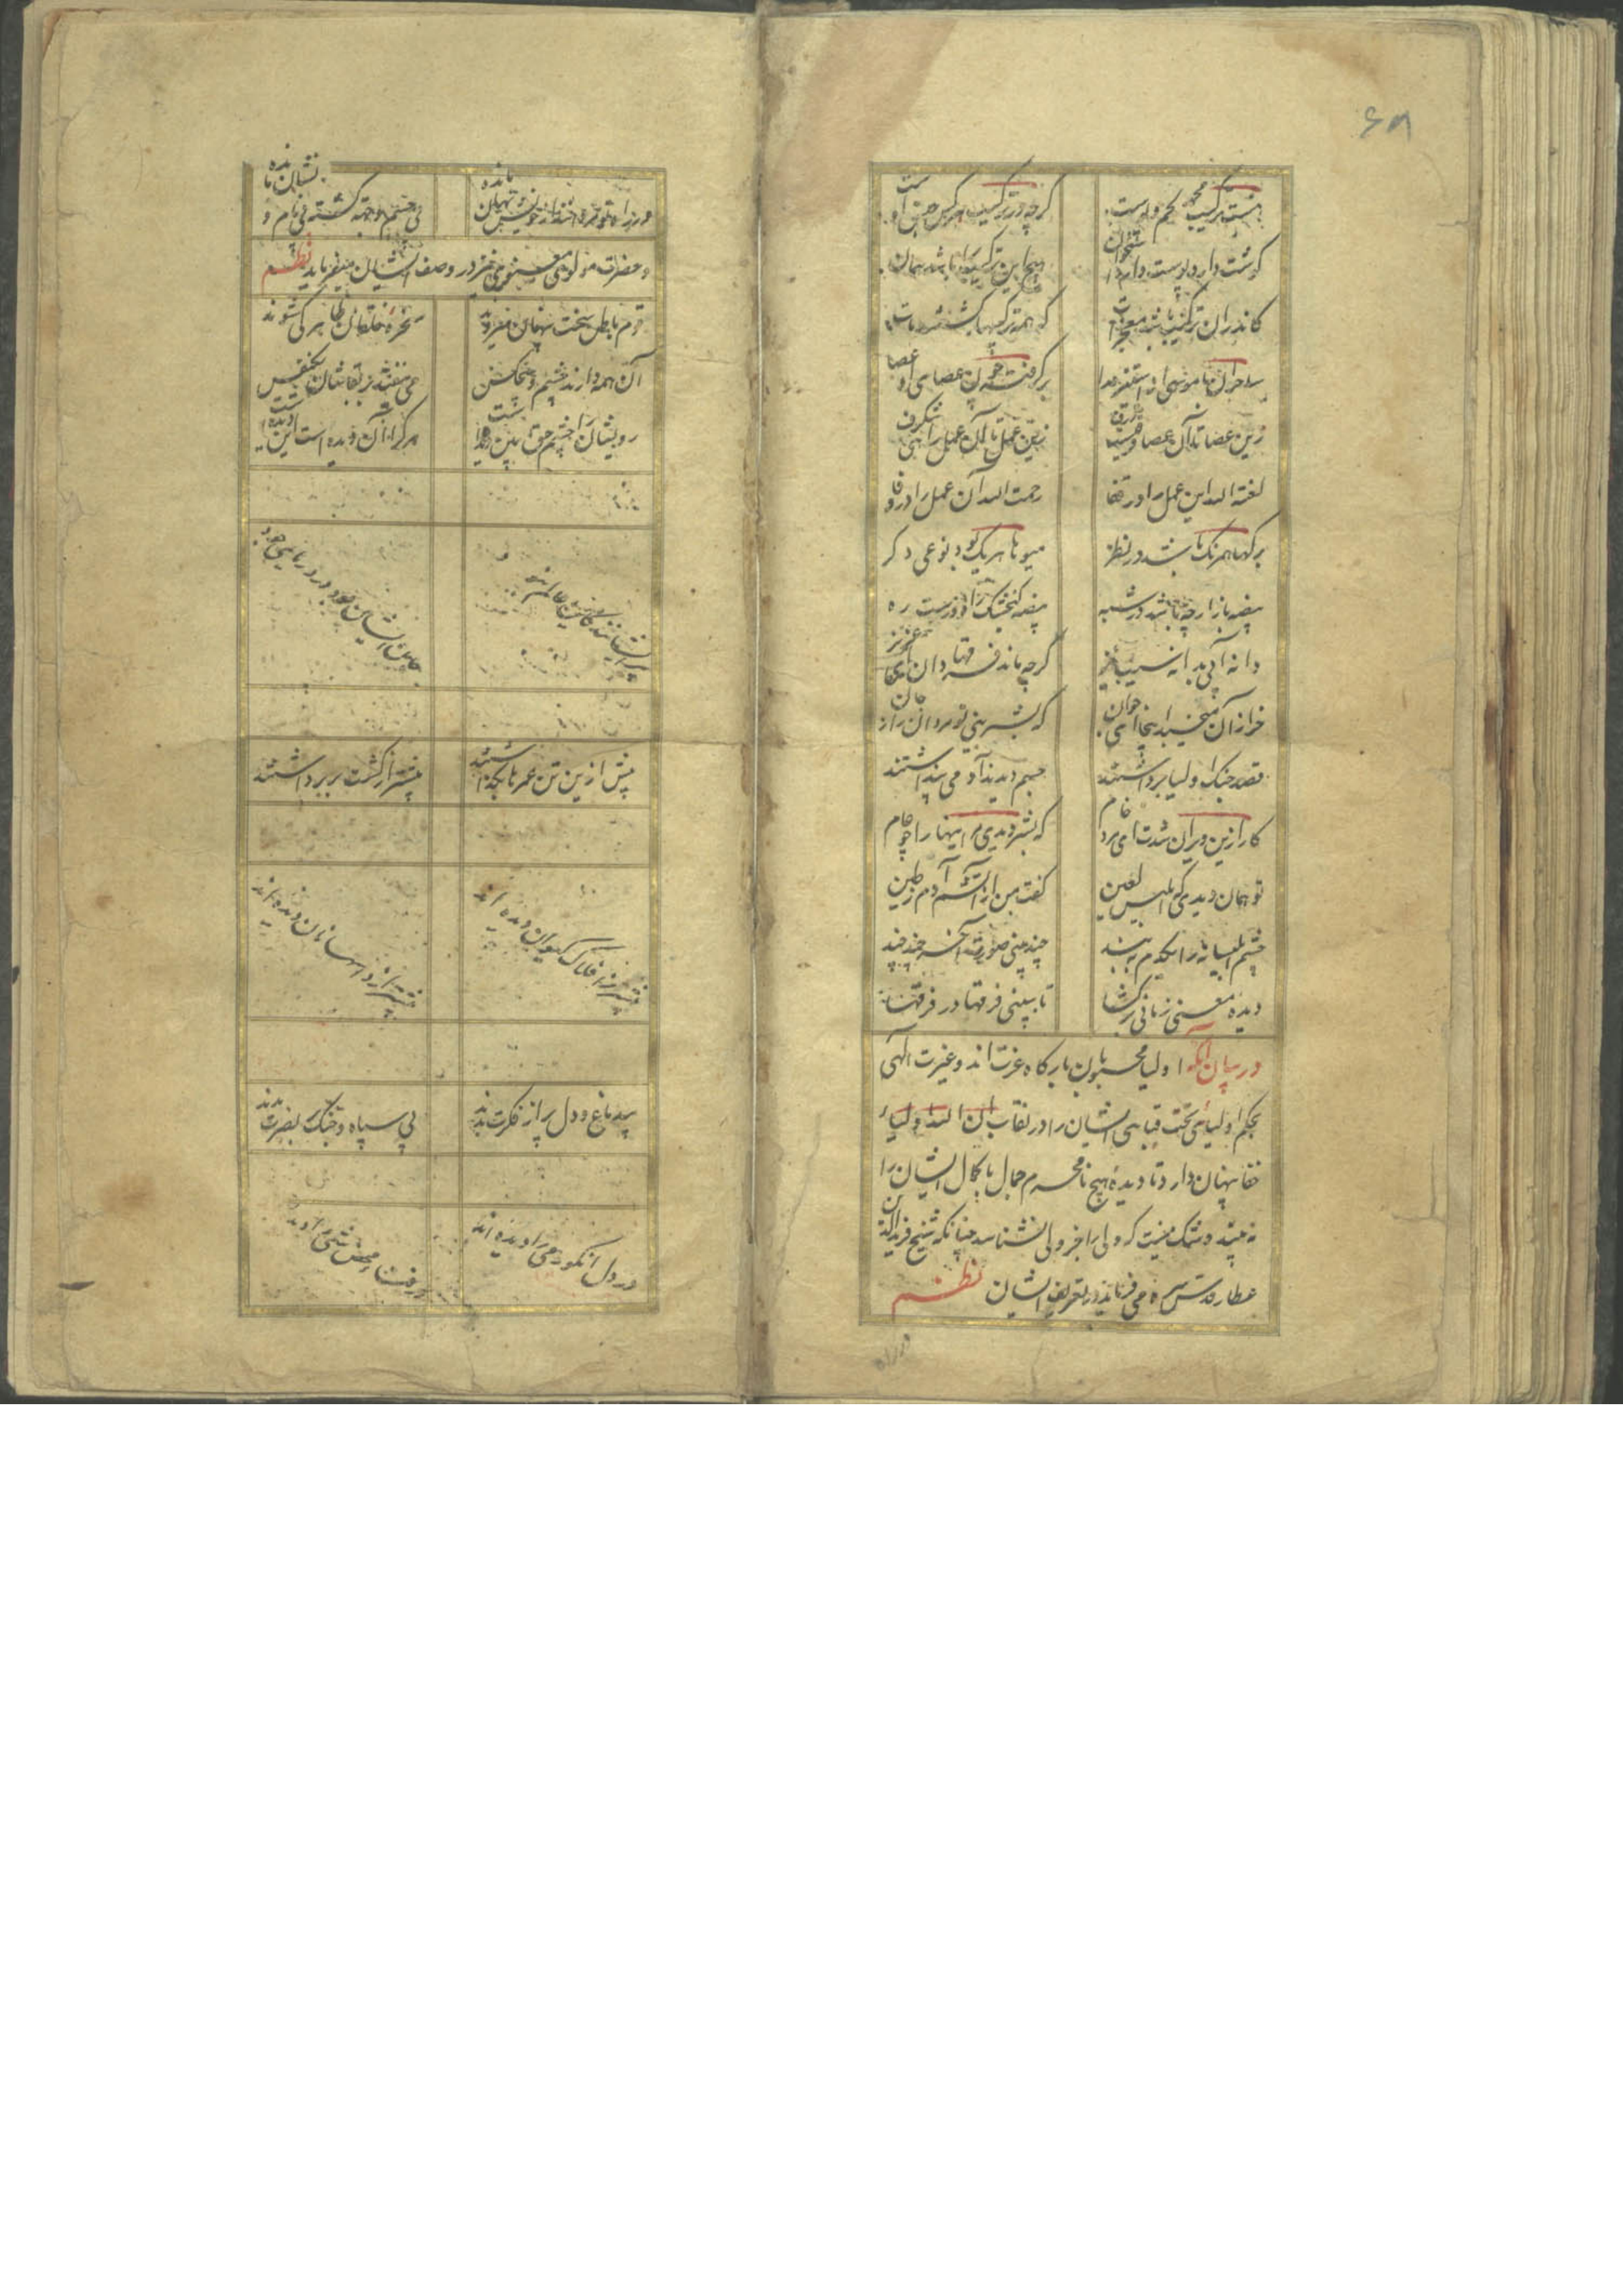 ۶۸
هست ترکیب محمد لحم و پوست گرچه در ترکیب هر کس جنس اوست
گوشت دارد پوست دارد استخوان هیچ این ترکیب را باشد همان
کاندران ترکیب باشد معجزات که همه ترکیبها گشتند مات
ساحران با موسی از استیزه را برگرفته چون عصای او عصا
زین عصا تا آن عصا فرقیست ژرف زین عمل تا آن عمل راهی شگرف
لعنة الله این عمل را در قفا رحمت الله آن عمل را در وفا
برگها همرنگ باشد در نظر میوها هر یک بود نوعی دگر
بیضه باز ارچه باشد در شبه بیضه گنجشک را دورست ره
دانه آبی به دانه سیب نیز گرچه ماند فرقها دان ای عزیز
خر ازان میخسبد اینجا ای جوان که بشر بینی تو مردان را ز جان
قصد جنگ اولیا برداشتند جسم دیدند آدمی پنداشتند
کار ازین ویران شدت ای مرد خام که بشر دیدی مر اینها را چو عام
تو همان دیدی که ابلیس لعین گفت من از آتشم آدم ز طین
چشم ابلیسانه را یکدم ببند چند بینی صورت آخر چند چند
دیده معنی زمانی برگشا تا ببینی فرقها در فرقها
در بیان آنکه اولیا محبوبان بارگاه عزت اند و غیرت الهی
بحکم اولیائی تحت قبابی ایشان را در نقاب ان الله اولیاء
خفا پنهان دارد تا دیده هیچ نامحرم جمال با کمال ایشان را
نه بیند و شک نیست که ولی را جز ولی نشناسد چنانکه شیخ فریدالدین
عطار قدس سره می فرماید در تعریف ایشان نظم
ماندهٔ بی جسم و جثه گشته بی نام و نشان مانده
و حضرت مولوی معنوی نیز در وصف ایشان میفرماید نظم
قوم باطن سخت پنهان میروند سخرهٔ خلقان ظاهر کی شوند
آن همه دارند و چشم هیچکس می نیفتد بر لقاشان یکنفس
رویشان را چشم حق بین دیده است هر کرا آن دیده است این دیده است
پیر ایشانند کاین عالم نبود جان ایشان بود در دریای جود
پیش ازین تن عمرها بگذاشتند پیشتر از کشت بر برداشتند
پیشتر ز افلاک کیوان دیده اند پیشتر از دانها نان دیده اند
بی دماغ و دل پر از فکرت بدند بی سپاه و جنگ بر نصرت بدند
در دل انگور می را دیده اند در فنای محض شی را دیده اند